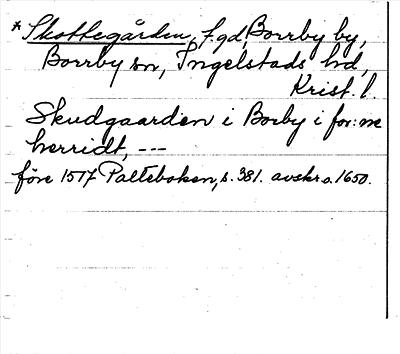 * Skottegården, f.gd, Borrby by,
Borrby sn, Ingelstads hd,
Krist. l.
Skudgaarden i Borby i for:ne
herridt, ---
före 1517 Palteboken, s. 381. avskr. o. 1650.